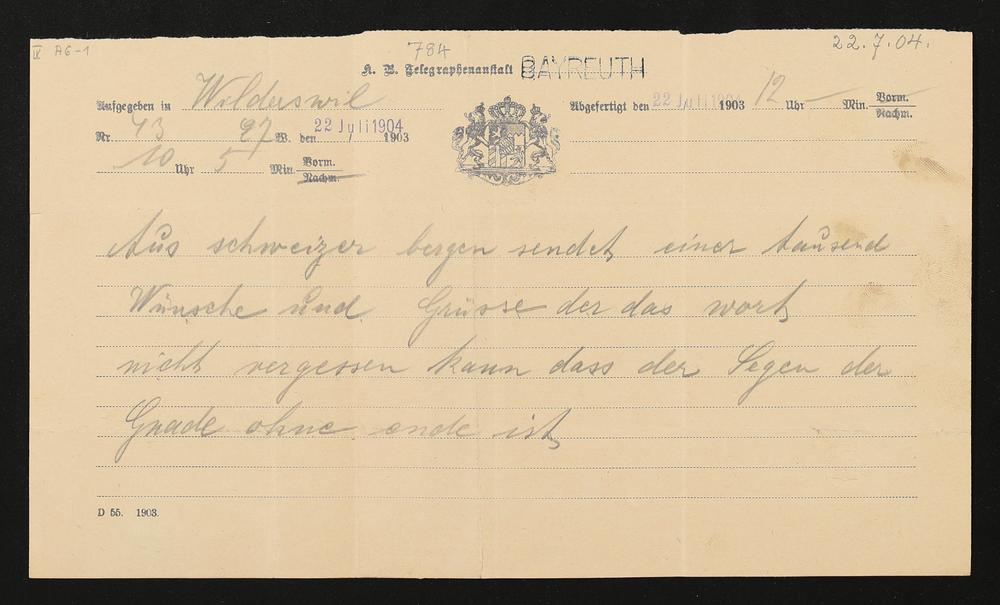 IX A6-1
784
22.7.04.
K. B. Telegraphenanstalt BAYREUTH
Aufgegeben in Wilderswil
Abgefertigt den 22 Juli 1904 1903 12 Uhr — Min. Vorm. Nachm.
Nr. 43 27 W. den 22 Juli 1904 1903
10 Uhr 5 Min. Vorm. Nachm.
Aus schweizer bergen sendet einer tausend
Wünsche und Grüsse der das wort
nicht vergessen kann dass der Segen der
Gnade ohne ende ist
D 55. 1903.